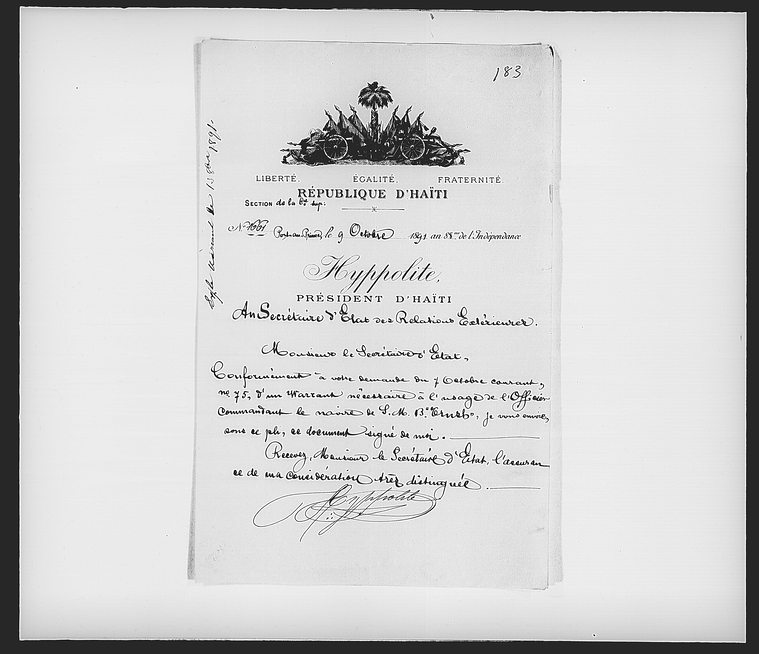 183
LIBERTÉ. ÉGALITÉ. FRATERNITÉ.
RÉPUBLIQUE D'HAÏTI
SECTION de la
Nº 1661
Port-au-Prince, le 9 Octobre 1891 an 88me de l'Indépendance
Hyppolite,
PRÉSIDENT D'HAÏTI
Au Secrétaire d'Etat des Relations Extérieures.
Monsieur le Secrétaire d'Etat,
Conformément à votre demande du 7 Octobre courant,
nº 75, d'un Warrant nécessaire à l'usage de l'Officier
commandant le navire de S. M. B. je vous envoie,
sous ce pli, ce document signé de moi.
Recevez, Monsieur le Secrétaire d'Etat, l'assuran
ce de ma considération très distinguée.
Hyppolite
1891.